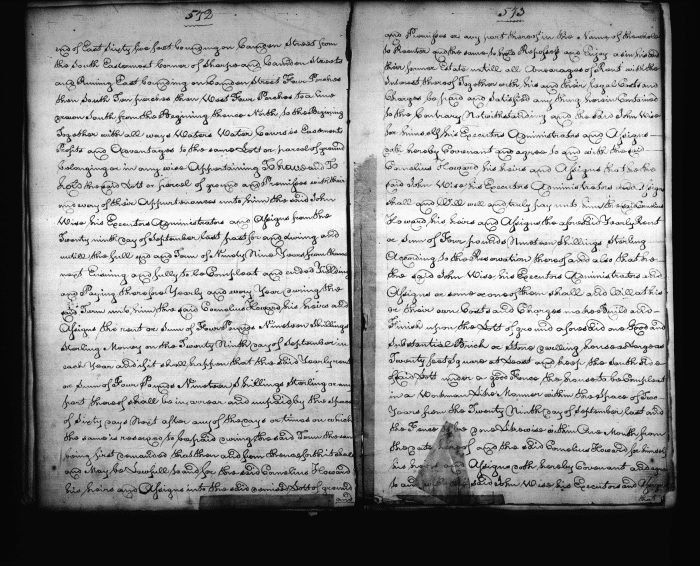 572
end of East Sixty five feet bounding on Camden Street from
the South Eastermost Corner of Sharpe and Camden Streets
and Runing East bounding on Camden Street Four Perches
then South Ten perches then West Four Perches to a line
drawn South from the Begining thence North to the Begining
Together with all ways Waters Water Courses Easements
Profits and Advantages to the same Lott or parcel of ground
belonging or in any wise Appertaining To have and To
hold the said Lott or parcel of ground and Premisses with their
and every of their Appurtenances unto him the said John
Wise his Executors Administrators and Assigns from the
Twenty ninth day of September last past for and during and
untill the full end and Term of Ninety Nine Years from thence
next Ensuing and fully to be Compleat and ended Yielding
and Paying therefore Yearly and every Year during the
said Term unto him the said Cornelius Howard his heirs and
Assigns the rent or Sum of Four Pounds Nineteen Shillings
Sterling Money on the Twenty Ninth day of September in
each Year and if it shall happen that the said Yearly rent
or Sum of Four Pounds Nineteen Shillings Sterling or any
part thereof shall be in arrear and unpaid by the space
of Sixty days Next after any of the days or times on which
the same is reserved to be paid during the said Term the same
being first demanded that then and from thenceforth it shall
and May be Lawfull to and for the said Cornelius Howard
his heirs and Assigns into the said demised Lott of ground
573
and Premisses or any part thereof in the Name of the whole
to Reenter and the same to have Repossess and Enjoy as in his and
their former Estate untill all Arrearages of Rent with the
Interest thereof Together with his and their legal Costs and
Charges be paid and Satisfied any thing herein Contained
to the Contrary Notwithstanding and the said John Wise
for himself his Executors Administrators and Assigns
doth hereby Covenant and agree to and with the said
Cornelius Howard his heirs and Assigns that he the
said John Wise his Executors Administrators and Assigns
shall and Will well and truly pay unto him the said Cornelius
Howard his heirs and Assigns the aforesaid Yearly Rent
or Sum of Four pounds Nineteen Shillings Sterling
According to the Reservation thereof and also that he
the said John Wise his Executors Administrators and
Assigns or some or one of them shall and Will at his
or their own Costs and Charges make Build and
Finish upon the Lott of ground aforesaid one Good and
Substantial Brick or Stone dwelling house as large as
Twenty feet Square at Least and keep the South side
of said Lott under a good Fence the house to be Compleat
in a Workman Like Manner within the Space of Two
Years from the Twenty Ninth day of September last and
the Fence to be done Likewise within One Month from
the date hereof and the said Cornelius Howard for himself
his heirs and Assigns doth hereby Covenant and agree
to and said John Wise his Executors and